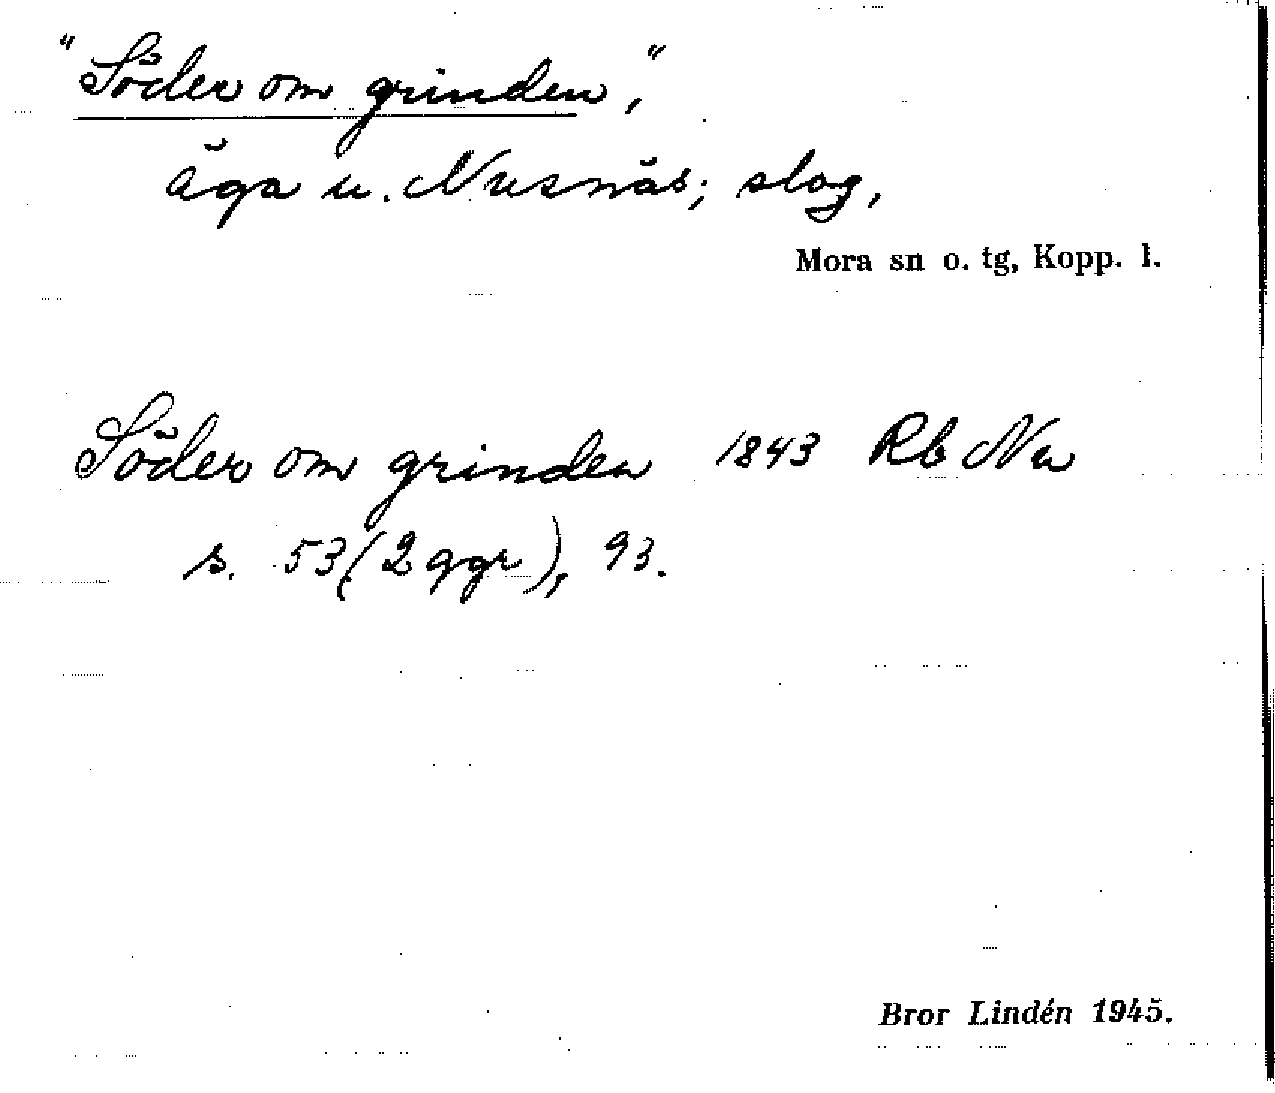 "Söder om grinden,"
äga u. Nusnäs; slog,
Mora sn o. tg, Kopp. l.
Söder om grinden 1843 Rb Nu
s. 53 (2 ggr), 93.
Bror Lindén 1945.